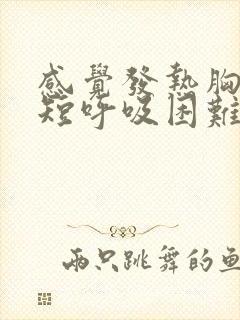 感覺發熱胸
短呼吸困難
兩只跳舞的魚